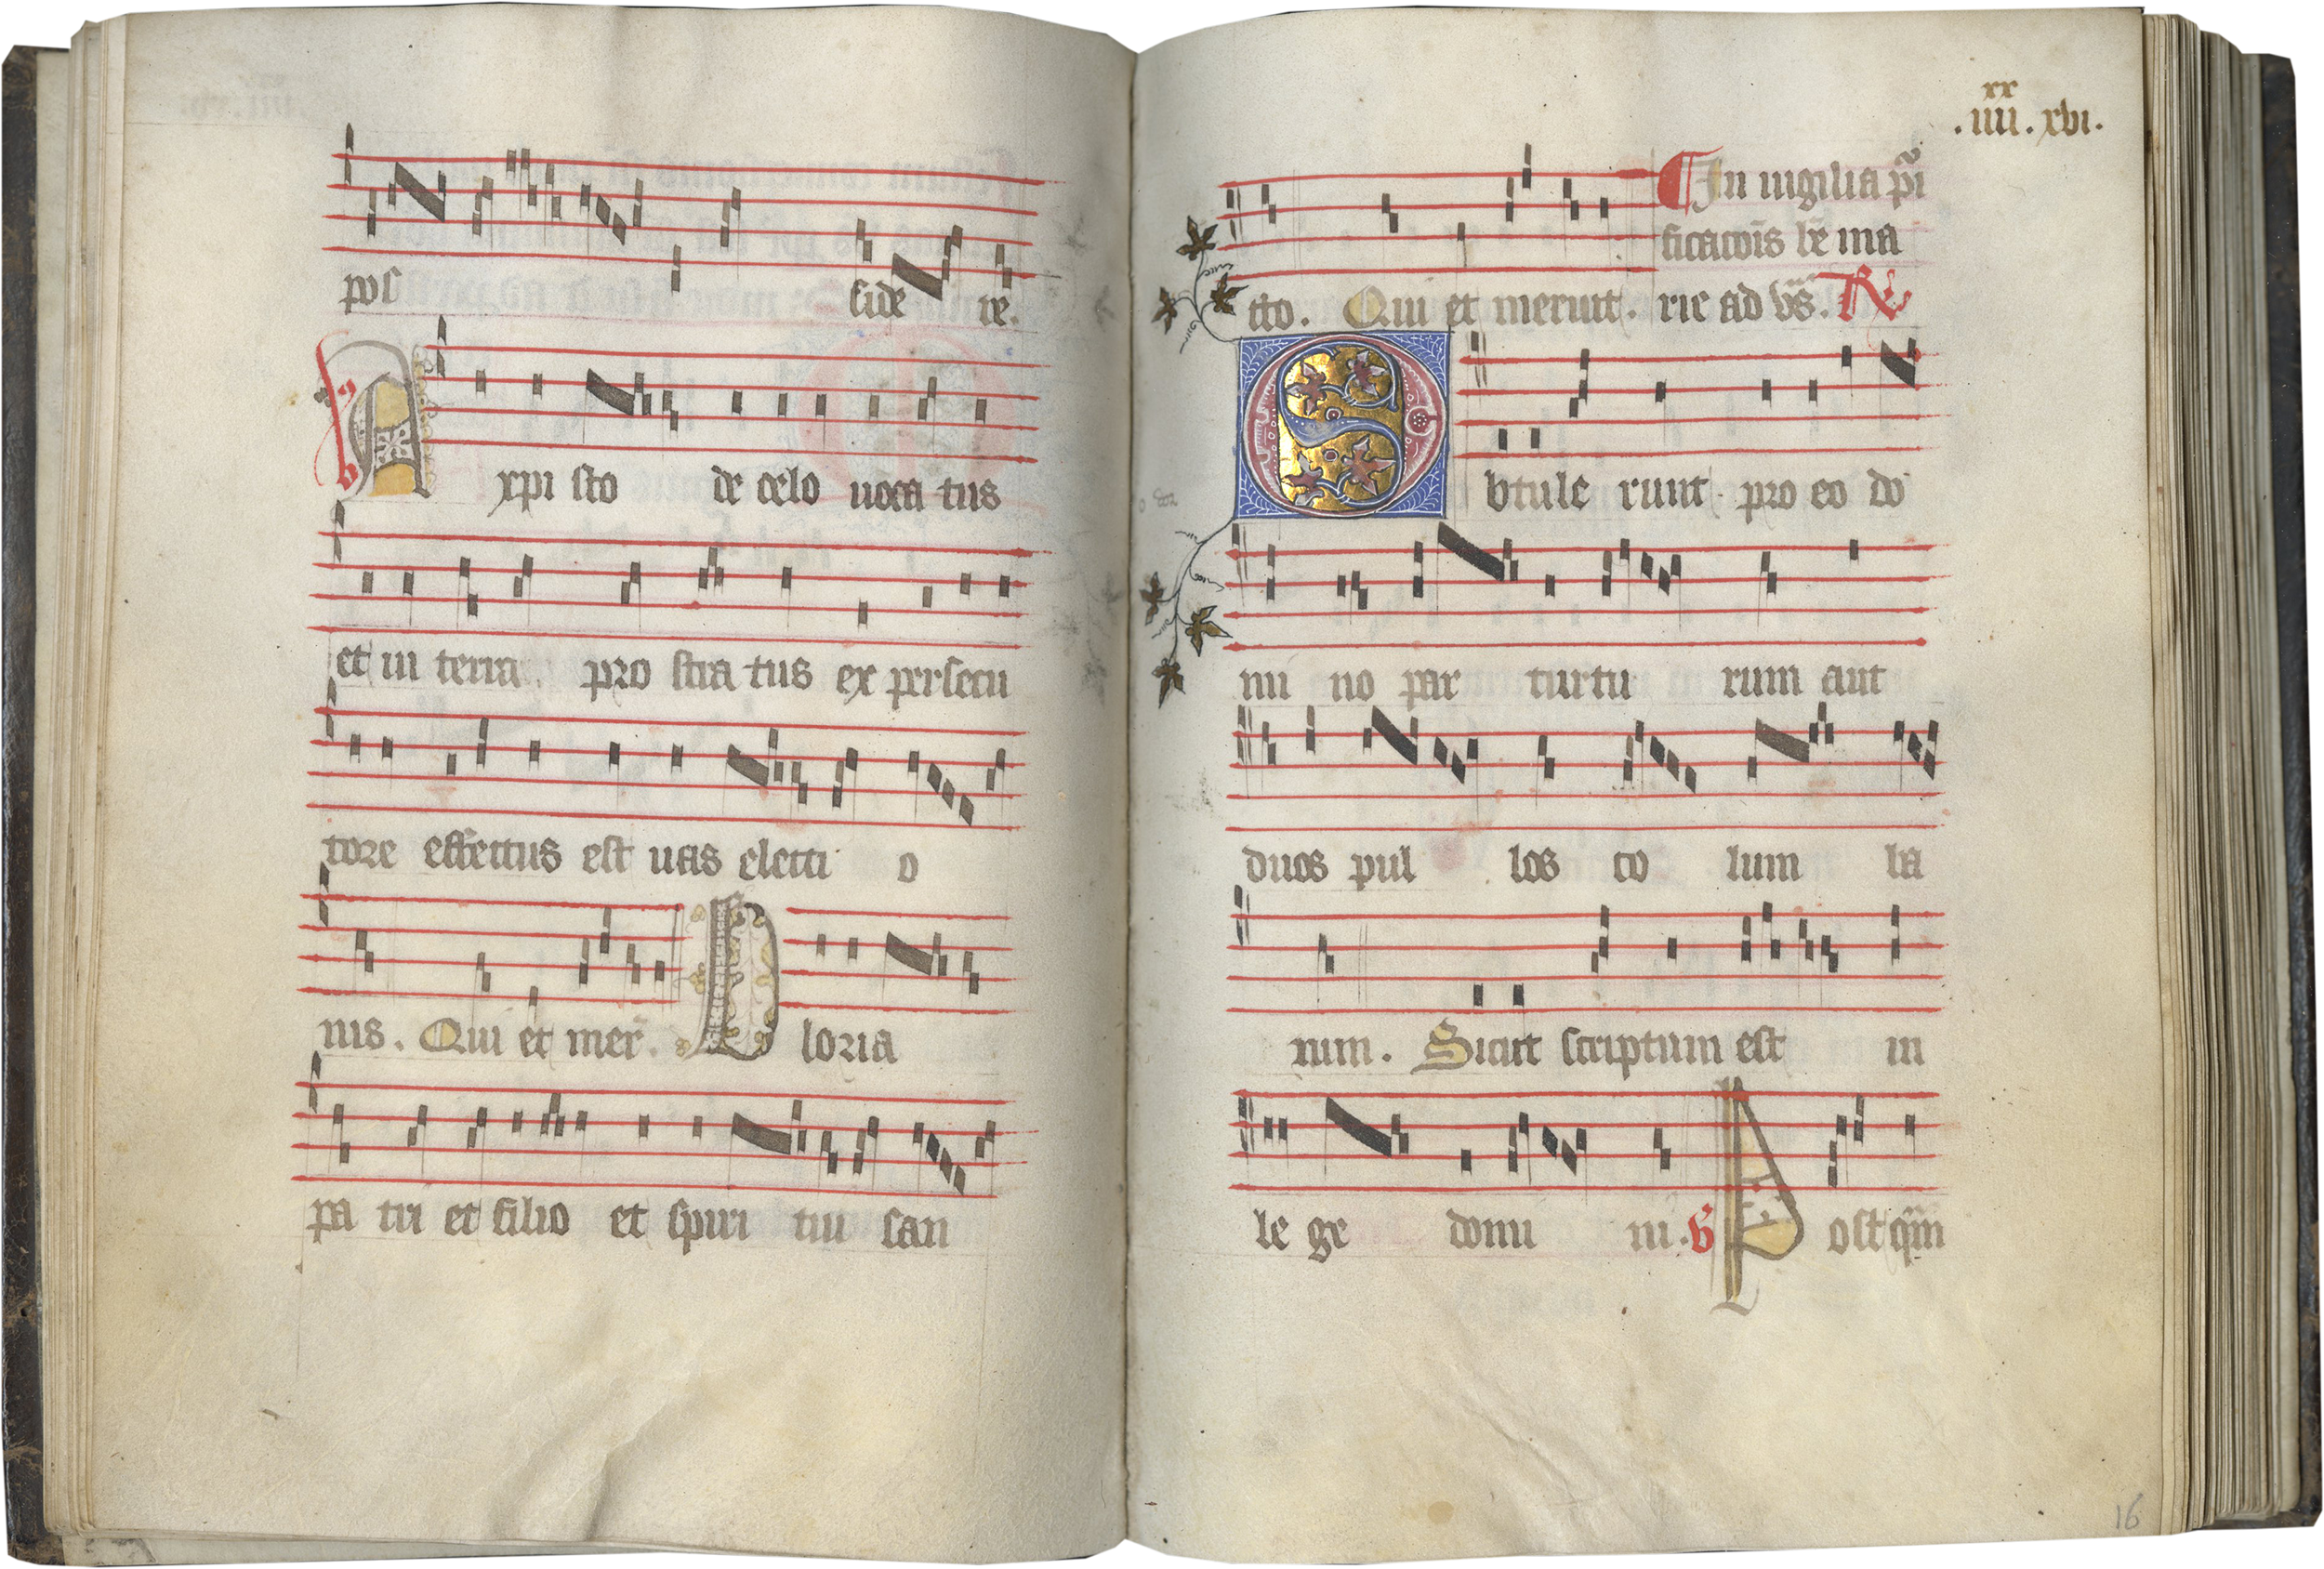 pos side re.
A xpisto de celo uoca tus
et in terra pro stra tus ex persecu
tore effectus est uas electi o
nis. Qui et mer̄. G loria
pa tri et filio et spiri tui san
xx
.iiii.xvi.
In uigilia pi
ficac̄oīs bē ma
cto. Qui et meruit. rie ad vs̄. R
O btule runt pro eo do
mi no par turtu rum aut
duos pul los co lum ba
rum. Sicut scriptum est in
le ge domi ni. V P ostq̄m
16